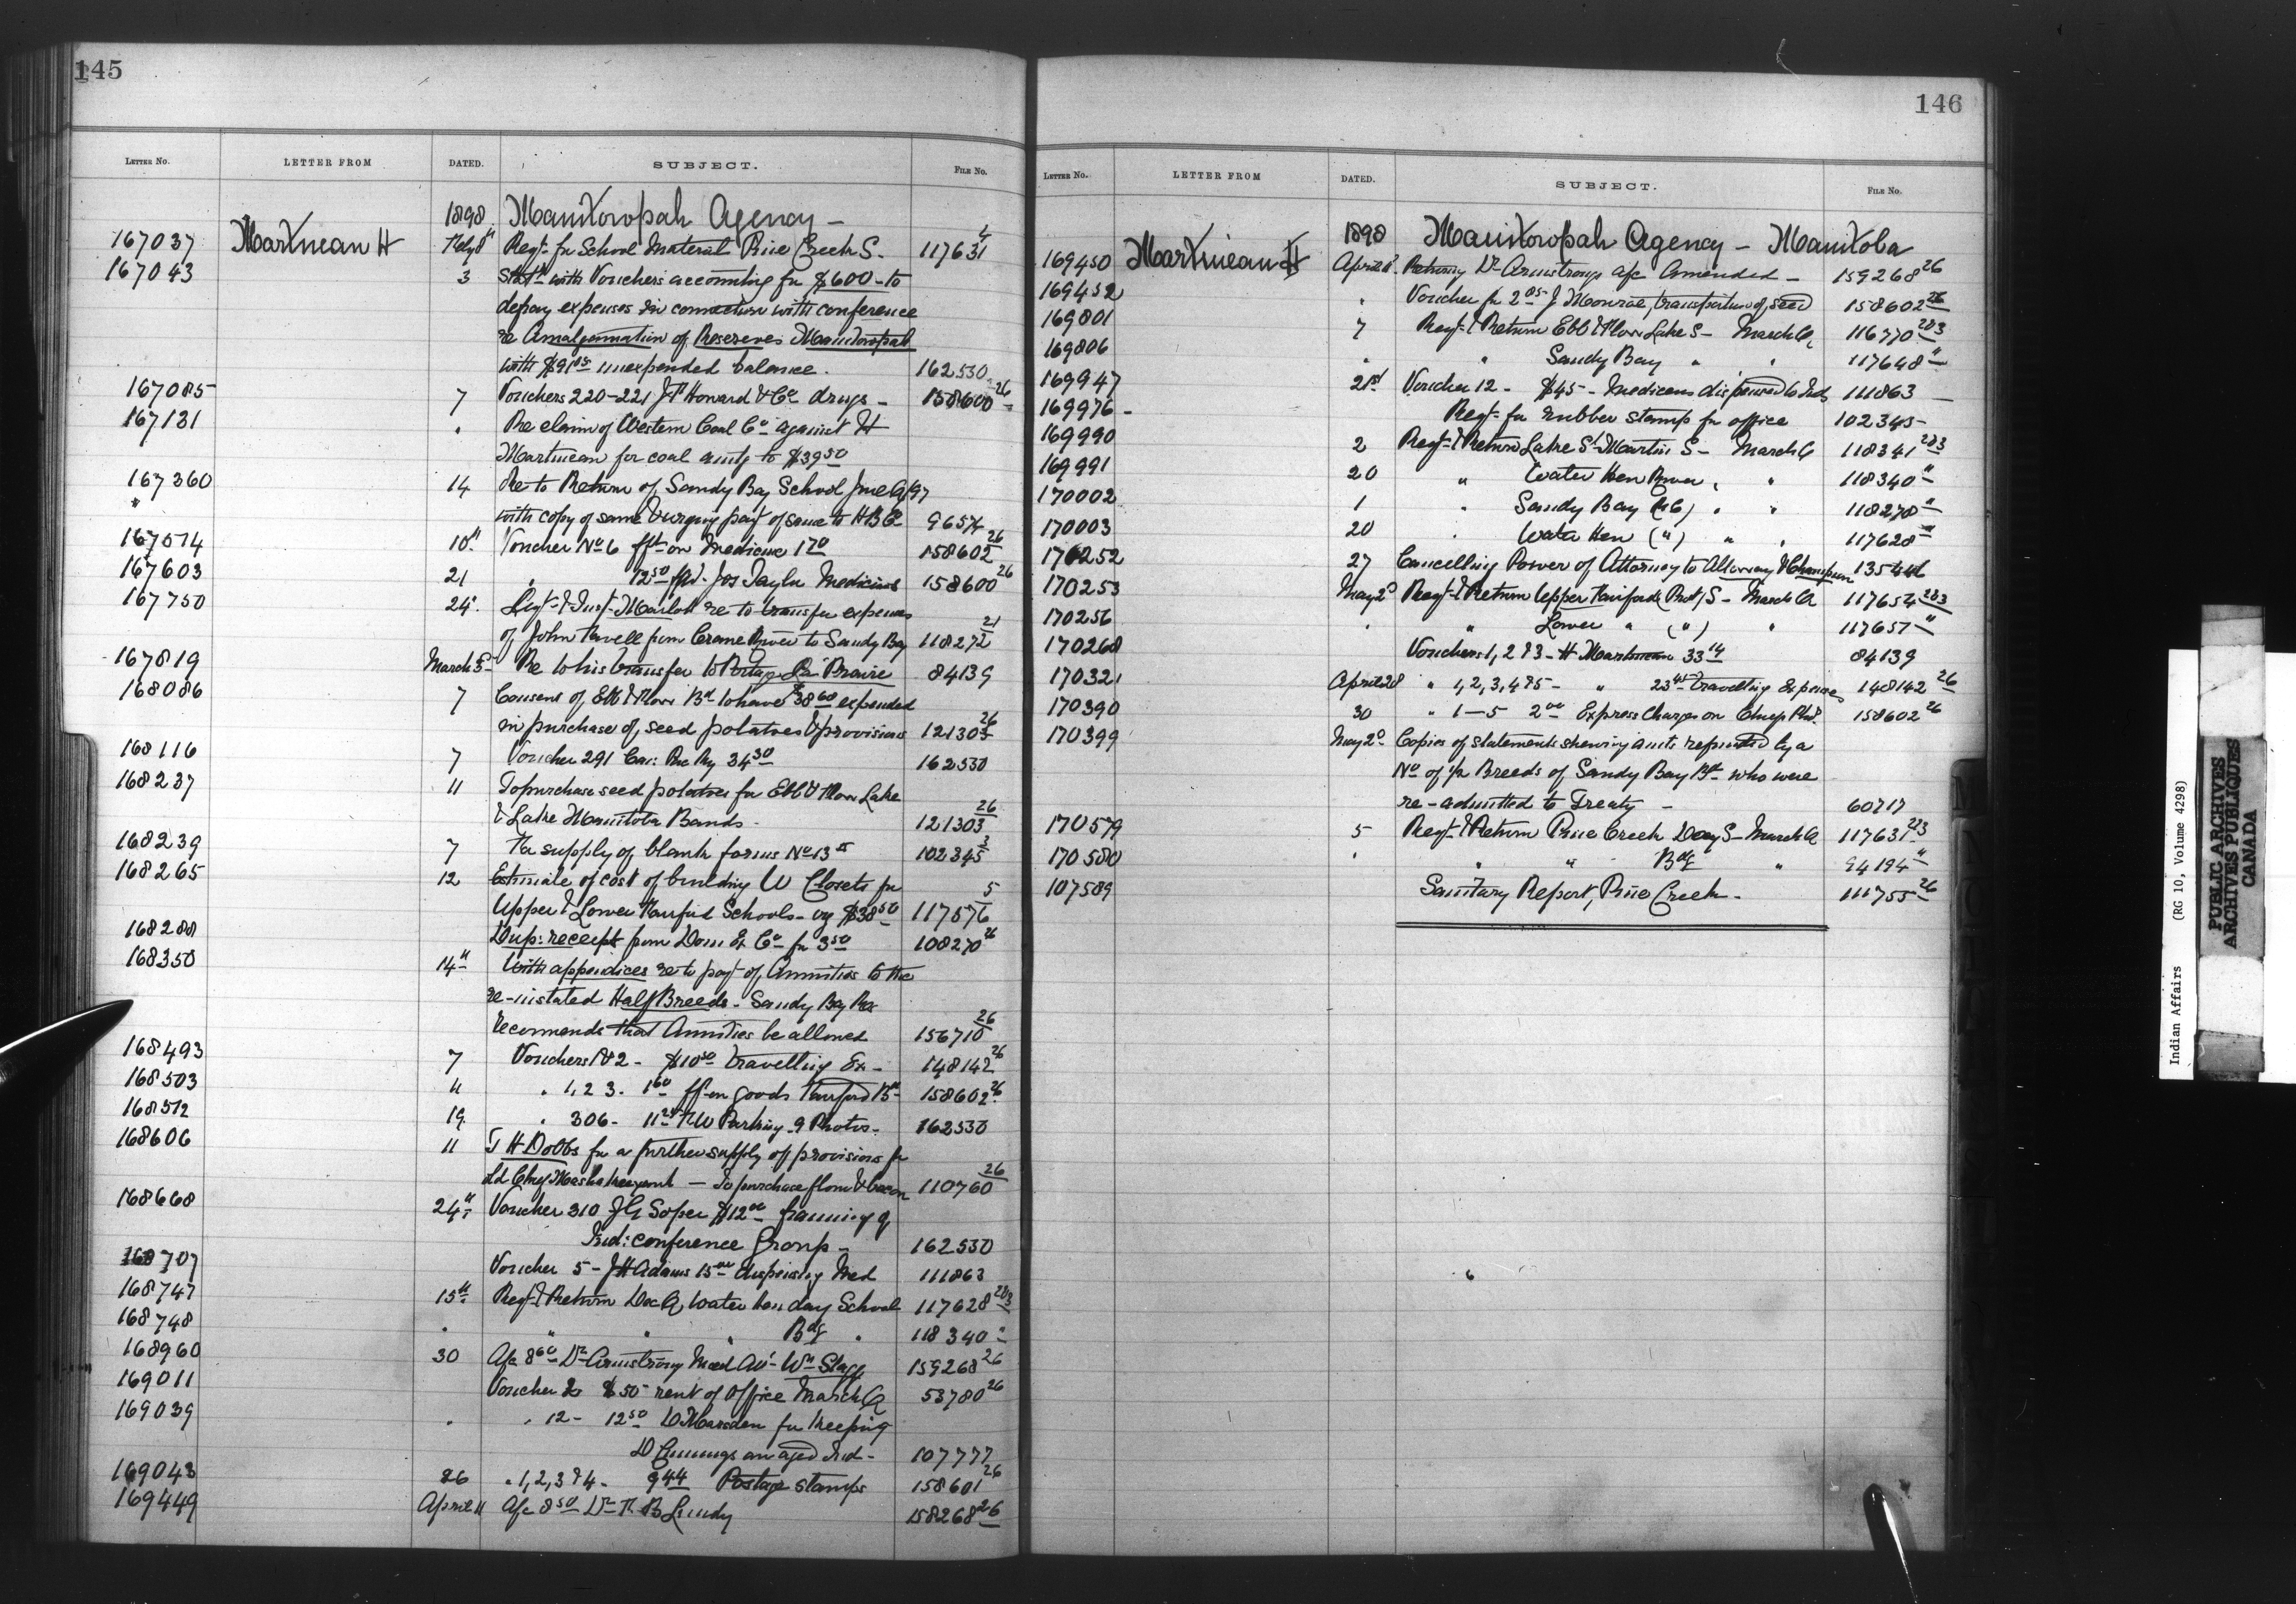 145
LETTER NO. LETTER FROM DATED. SUBJECT. FILE NO.
1898 Manitowpah Agency —
167037 Martineau H Feby 8th Reqt. for School Material Pine Creek S. 117631 4
167043 3 Statt with Vouchers accounting for $600 - to
defray expenses in connection with conference
re Amalgamation of Reserves Manitowpah
with $91 unexpended balance. 162530
167085 7 Vouchers 220-221 J F Howard & Co drugs - 158600 26
167131 " Re claim of Western Coal Co against H
Martineau for coal amtg to $39 50
167360 14 Re to Return of Sandy Bay School June Q/97
" with copy of same & urging payt of same to H B Co 9657
167574 10th Voucher No 6 frt on Medicine 1 70 158602 26
167603 21 " 12 50 Jos Taylor Medicines 158600 26
167750 24 Regt. & Inspr Marlatt re to transfer expenses
of John Favell from Crane River to Sandy Bay 118272 21
167819 March 5 Re to his transfer to Portage La Prairie 84139
168086 7 Consent of Ebb & Flow Bd to have $38 60 expended
in purchase of seed potatoes & provisions 121303 26
168116 7 Voucher 291 Can: Pac Ry 34 30 162530
168237 11 To purchase seed potatoes for Ebb & Flow Lake
& Lake Manitoba Bands - 121303 26
168239 7 For supply of blank forms No 13 102345 3
168265 12 Estimate of cost of building W Closets for
Upper & Lower Fairford Schools - $38 50 117576 5
168288 Dup: receipt from Dom Ex Co for 3 50 108270 26
168350 14th With appendices re to payt of Annuities to the
re-instated Half Breeds - Sandy Bay Res
recommends that Annuities be allowed 156710 26
168493 7 Vouchers 1 & 2 - $10 50 travelling Ex - 148142 26
168503 11 " 1, 2 3. 1 60 frt on goods Fairford Bd 158602 26
168512 19 " 306 - 11 25 F W Parkin 9 Photos - 162530
168606 11 J H Dobbs for a further supply of provisions for
old Chief — To purchase flour & bacon 110760 26
168668 24th Voucher 310 J G Soper $12 00 framing of
Ind: conference Group - 162530
168707 Voucher 5 - J H Adams 15 00 dispensing Med 111863
168747 15th Reqt. & Return Dec Q, Water hen day School 117628 283
168748 " " " " Bdg " 118340 "
168960 30 A/c 8 60 Dr Armstrong Med Att Wm Stagg 159268 26
169011 Voucher 2 $50 - rent of Office March Q 53780 26
169039 " " 12 - 12 50 D Marsden for keeping
D Cummings an aged Ind - 107777
169043 26 " 1, 2, 3 & 4 - 9 44 Postage stamps 158601 26
169449 April 11 A/c 8 50 Dr F. B Lundy 158268 26
146
LETTER NO. LETTER FROM DATED. SUBJECT. FILE NO.
1898 Manitowpah Agency — Manitoba
169450 Martineau H April 11 Returng Dr Armstrongs a/c Amended - 159268 26
169452 " Voucher for 2 05 J Monroe, transportation of seed 158602 26
169801 7 Reqt. & Return Ebb & Flow Lake S - March Q 116770 283
169806 " " Sandy Bay " " 117648 "
169947 21st Voucher 12 - $45 - Medicines dispensed to Inds 111863 —
169976 - Reqt. for rubber stamp for office 102345 -
169990 2 Reqt. & Return Lake St Martin S - March Q 118341 283
169991 20 " Water Hen River " " 118340 "
170002 1 " Sandy Bay (RC) " " 118270 "
170003 20 " Water Hen (") " " 117628 "
170252 27 Cancelling Power of Attorney to Alloway & Champion 135446
170253 May 2d Reqt. & Return Upper Fairford (Prot) S - March Q 117654 283
170256 " " Lower " (") " 117657 "
170268 Vouchers 1, 2 & 3 - H Martineau 33 14 84139
170321 April 28 " 1, 2, 3, 4 & 5 - " 23 45 travelling Expenses 148142 26
170390 30 " 1-5 2 00 Express Charges on 158602 26
170399 May 2d Copies of statements shewing amts refunded by a
No of ½ Breeds of Sandy Bay Bd who were
re-admitted to Treaty - 60717
170579 5 Reqt. & Return Pine Creek Day S - March Q 117631 283
170580 " " " Bdg " 94194 "
107589 Sanitary Report, Pine Creek - 111755 26
Indian Affairs (RG 10, Volume 4298)
PUBLIC ARCHIVES
ARCHIVES PUBLIQUES
CANADA